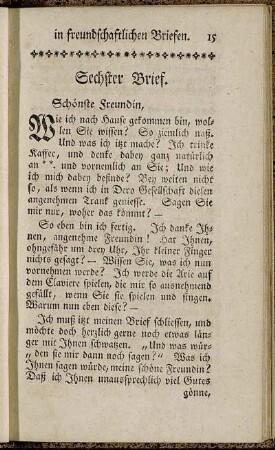 in freundschaftlichen Briefen. 15
Sechster Brief.
Schönste Freundin,
Wie ich nach Hause gekommen bin, wol-
len Sie wissen? So ziemlich naß.
Und was ich itzt mache? Ich trinke
Kaffee, und denke dabey ganz natürlich
an **. und vornemlich an Sie; Und wie
ich mich dabey befinde? Bey weiten nicht
so, als wenn ich in Dero Gesellschaft diesen
angenehmen Trank geniesse. Sagen Sie
mir nur, woher das kömmt? —
So eben bin ich fertig. Ich danke Ih-
nen, angenehme Freundin! Hat Ihnen,
ohngefähr um drey Uhr, Ihr kleiner Finger
nichts gesagt? — Wissen Sie, was ich nun
vornehmen werde? Ich werde die Arie auf
dem Claviere spielen, die mir so ausnehmend
gefällt, wenn Sie sie spielen und singen.
Warum nun eben diese? —
Ich muß itzt meinen Brief schliessen, und
möchte doch herzlich gerne noch etwas län-
ger mit Ihnen schwatzen. „Und was wür-
„den sie mir dann noch sagen?“ Was ich
Ihnen sagen würde, meine schöne Freundin?
Daß ich Ihnen unaussprechlich viel Gutes
gönne,